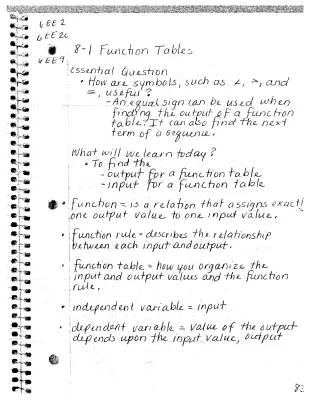 6EE2
6EE2c
8-1 Function Tables
6EE9
Essential Question
• How are symbols, such as <, >, and
=, useful?
- An equal sign can be used when
finding the output of a function
table. It can also find the next
term of a sequence.
What will we learn today?
• To find the
- output for a function table
- input for a function table
• function = is a relation that assigns exactly
one output value to one input value.
• function rule = describes the relationship
between each input and output.
• function table = how you organize the
input and output values and the function
rule.
• independent variable = input
• dependent variable = value of the output
depends upon the input value, output